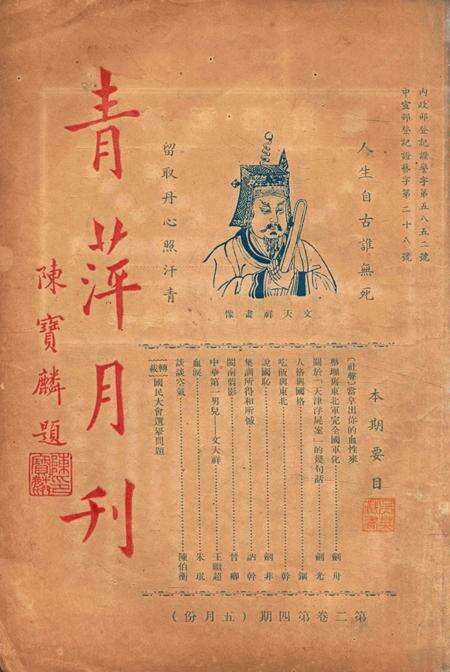 內政部登記證警字第五八五二號
中宣部登記證藝字第二十八號
人生自古誰無死
留取丹心照汗青
文天祥畫像
青萍月刊
陳寶麟題
本期要目
〔社聲〕當拿出你的血性來
整理舊東北軍完全國軍化 劍舟
關於「天津浮屍案」的幾句話 劍光
人格與國格 鋼
吃飯與東北 幹
說國恥 劍非
集訓所得和所感 訥幹
閩南剪影 卿
中華第一男兒——文天祥 王超
血淚 朱珉
談談空氣 陳伯衡
〔轉載〕國民大會選舉問題
第二卷第四期(五月份)